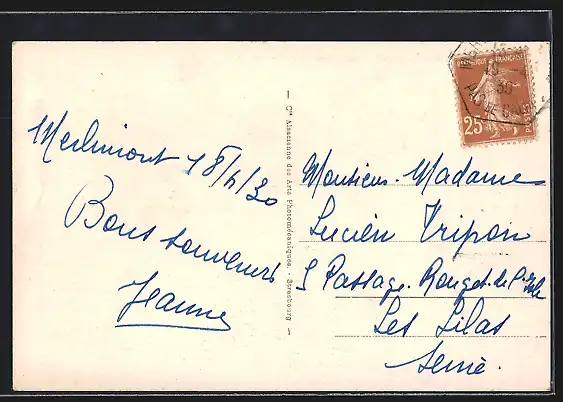 Merlimont 18/4/30
Bons souvenirs
Jeanne
— Cie Alsatienne des Arts Photomécaniques. - Strasbourg —
REPUBLIQUE FRANÇAISE
25
POSTES
30
PAS DE CALAIS
Monsieur. Madame
Lucien Tripon
5 Passage. Rouget-de-l'Isle
Les Lilas
Seine.